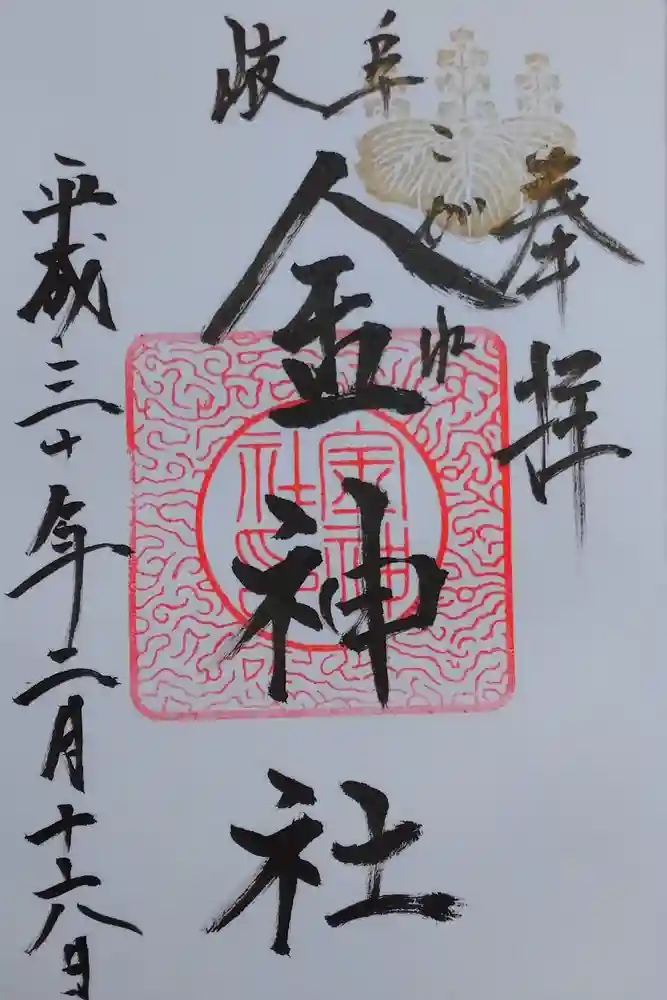 奉拝
岐阜
こがね
金神社
金神社印
平成三十年二月十六日